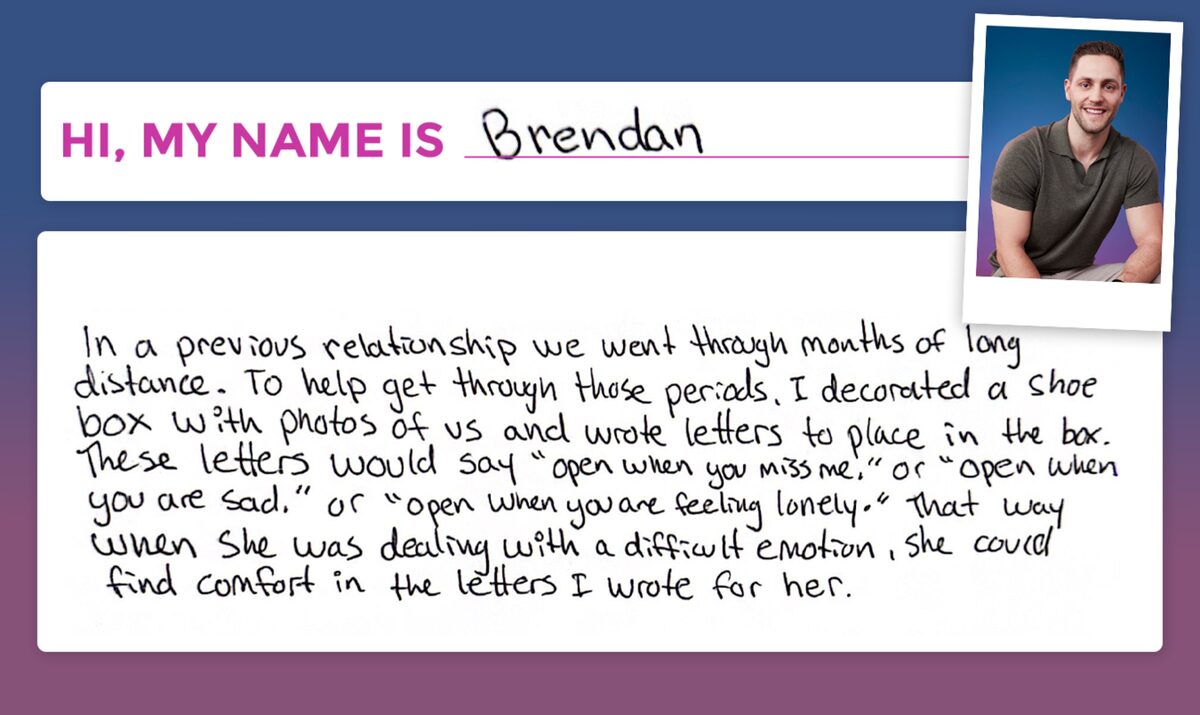 HI, MY NAME IS Brendan
In a previous relationship we went through months of long
distance. To help get through those periods, I decorated a shoe
box with photos of us and wrote letters to place in the box.
These letters would say "open when you miss me," or "open when
you are sad," or "open when you are feeling lonely." That way
when she was dealing with a difficult emotion, she could
find comfort in the letters I wrote for her.